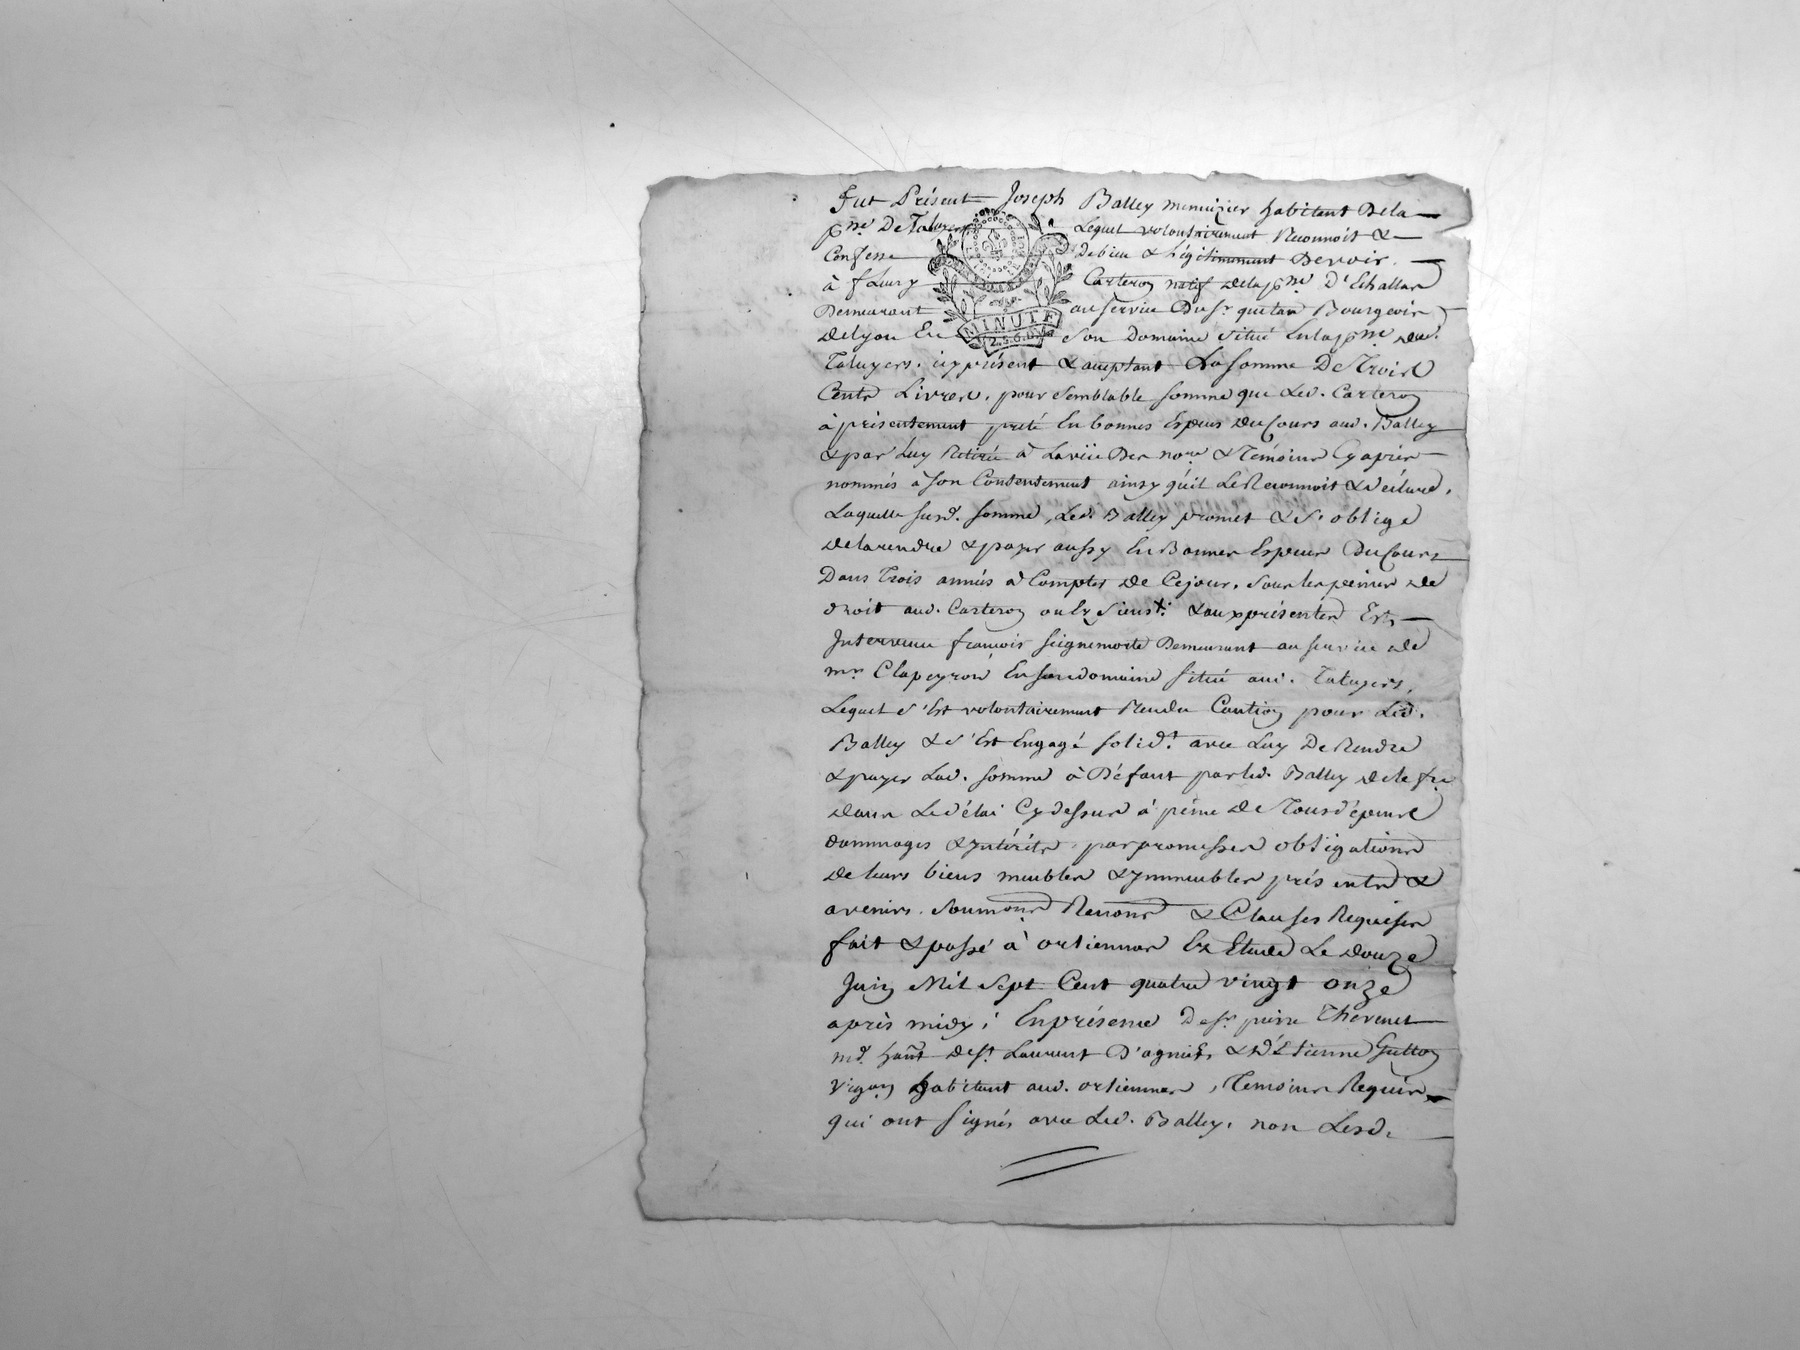 Fut Présent Joseph Balley menuizier habitant Dela
psse De Taluyers Lequel volontairement Reconnoit &
Confesse debien & Légitimement Devoir
à fleury Carteron natif dela psse D'Echallas
Demeurant au service Du Sr. quitan Bourgeois
De Lyon En Son Domaine Situé En la psse dud.
Taluyers. icy présent & acceptant La somme De Trois
Cents Livres. pour semblable somme que Led. Carteron
à présentement preté En bonnes Espèces Du Cours aud. Balley
& par Luy Retirée à La vüe Des nore & Témoins Cy après
nommés à son Contentement ainsy qu'il Le Reconnoit & déclare.
Laquelle susd. somme, Led. Balley promet & s'oblige
De la rendre & payer aussy En Bonnes Espèces Du Cours
Dans Trois années à Compter de Ce jour, sous les peines de
droit aud. Carteron ou Es Siens. & aux présentes Est
Intervenu françois Seignemorte Demeurant au service de
mr. Clapeyron En son domaine situé aud. Taluyers,
Lequel s'Est volontairement Rendu Caution pour Led.
Balley & s'Est Engagé solidt. avec Luy De Rendre
& payer Lad. somme à Défaut par led. Balley de le fre
dans Le délai Cy dessus à peine de Tous dépens
dommages & Intérêts. par promesses obligations
de leurs biens meubles & ymmeubles présents &
avenirs. Soumons Renons & Clauses Requises
fait & passé à orliennas Ez Etude Le douze
Juin Mil Sept Cent quatre vingt onze
après midy; En présence De sr. pierre Thevenet
md. hant De St. Laurent D'agnix & d'Etienne Guillon
vigon habitant aud. orliennas, Temoins Requis
qui ont signés avec Led. Balley, non Lesd.
MINUTE